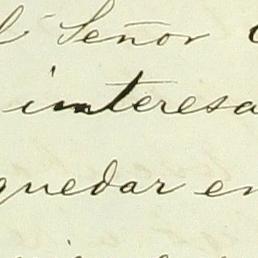 l Señor
interesa
quedar en